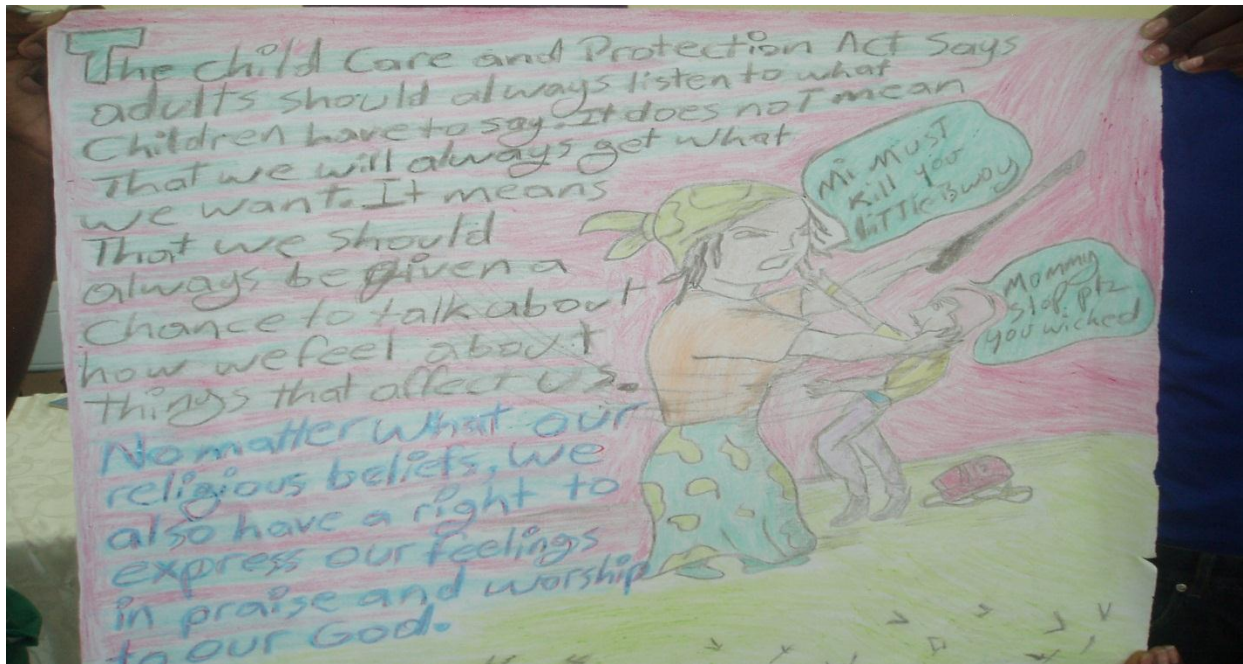 The child Care and Protection Act Says
adults should always listen to what
Children have to say. It does not mean
That we will always get what
we want. It means
That we should
always be given a
Chance to talk about
how we feel about
things that affect us.
No matter what our
religious beliefs, we
also have a right to
express our feelings
in praise and worship
to our God.
Mi must
Kill you
little bwoy
Mommy
Stop plz
you wicked